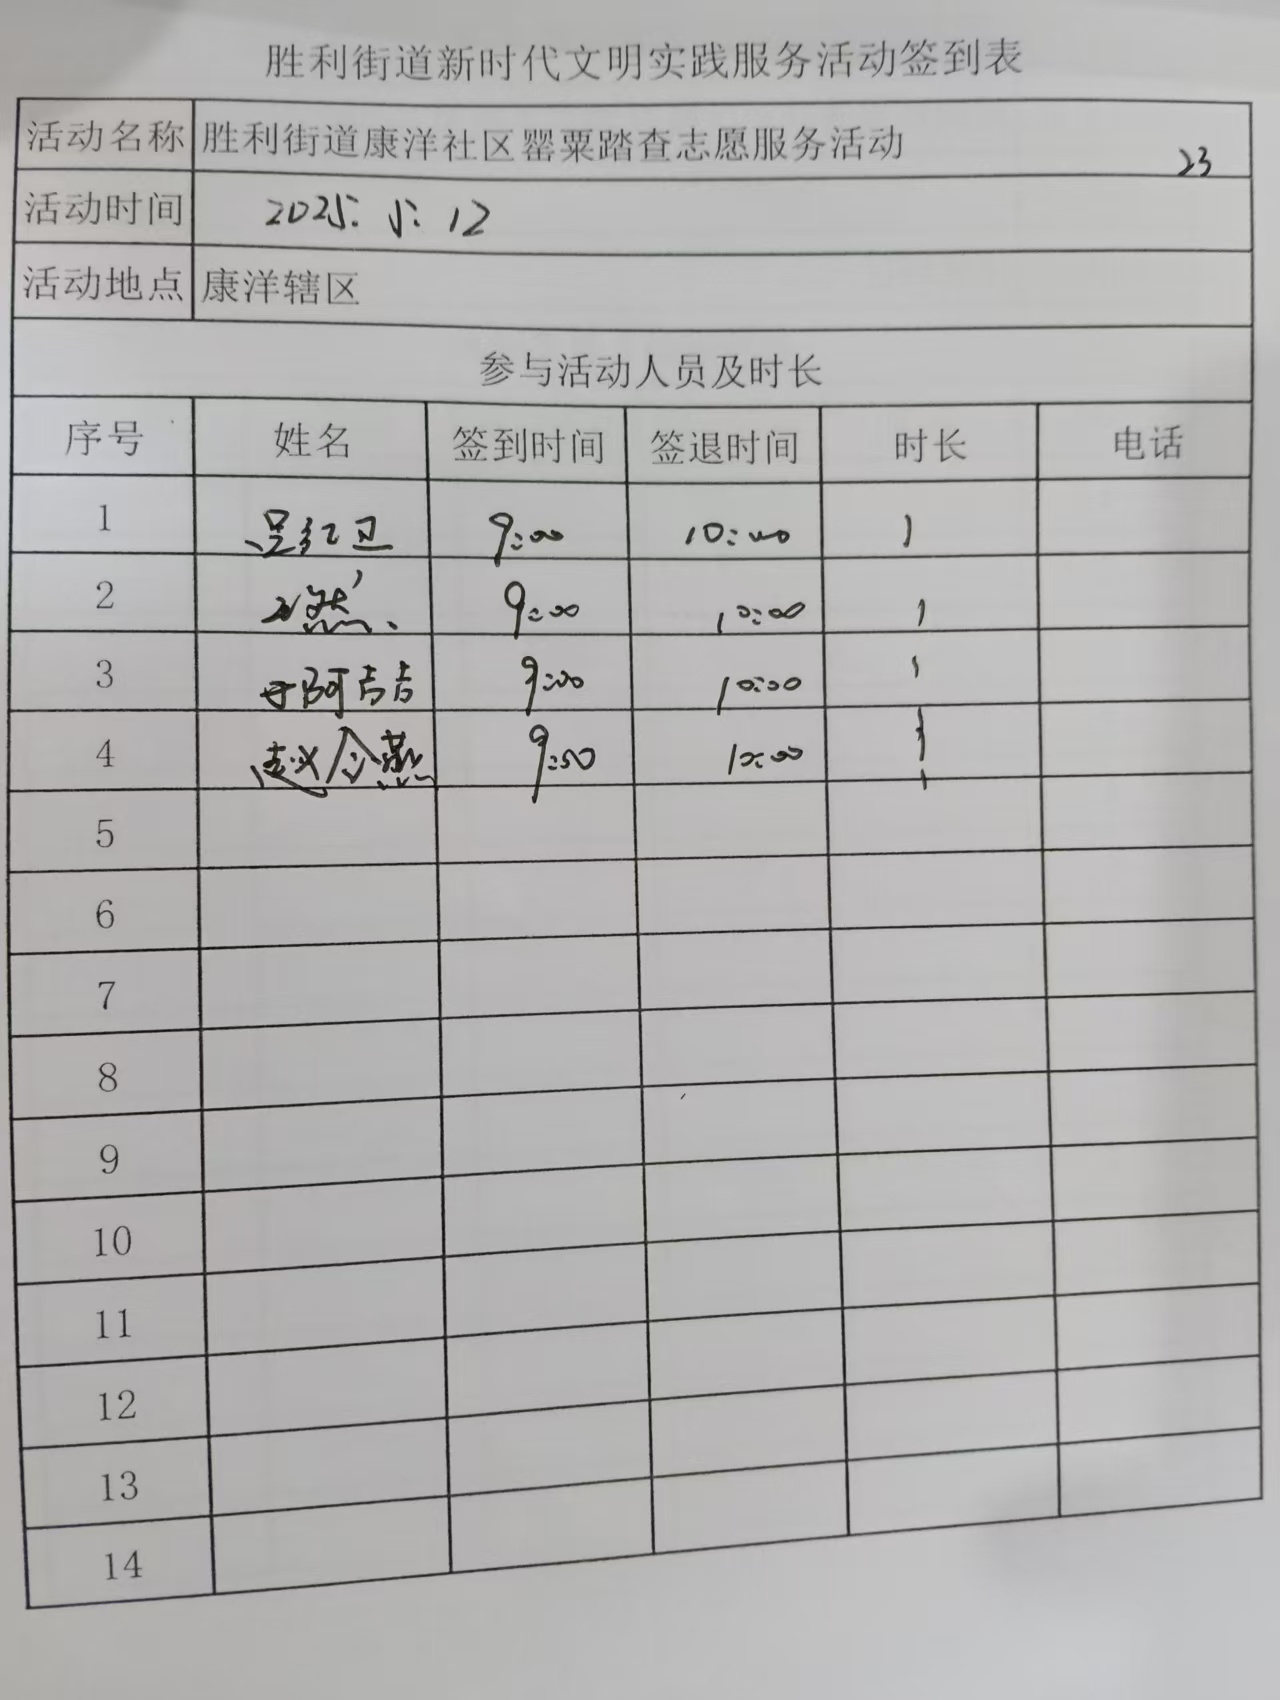 胜利街道新时代文明实践服务活动签到表
活动名称 胜利街道康洋社区罂粟踏查志愿服务活动 23
活动时间 2025. 5. 12
活动地点 康洋辖区
参与活动人员及时长
序号 姓名 签到时间 签退时间 时长 电话
1 吴红卫 9:00 10:00 1
2 然 9:00 10:00 1
3 阿吉吉 9:00 10:00 1
4 赵 燕 9:00 10:00 1
5
6
7
8
9
10
11
12
13
14